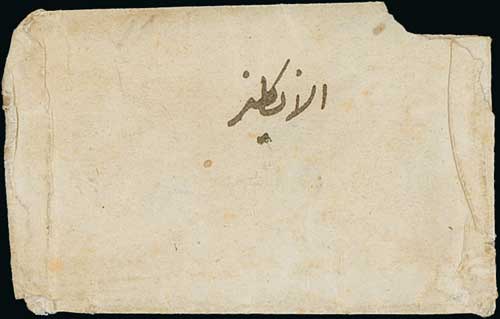 الانكليز